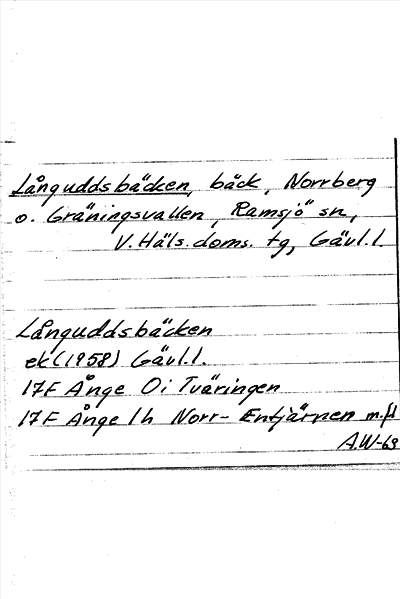 Långuddsbäcken, bäck, Norrberg
o. Gräningsvallen, Ramsjö sn,
V. Häls. doms. tg, Gävl. l.
Långuddsbäcken
ek (1958) Gävl. l.
17F Ånge 0i Tväringen
17F Ånge 1h Norr-Entjärnen m.fl
A.W-69